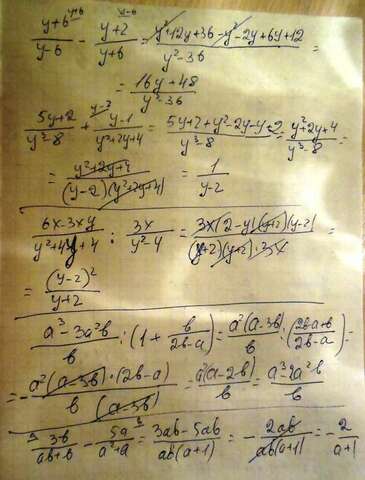 (y+6)/(y-6) - (y+2)/(y+6) = (y²+12y+36-y²-2y+6y+12)/(y²-36) =
= (16y+48)/(y²-36)
(5y+2)/(y³-8) + (y-1)/(y²+2y+4) = (5y+2+y²-2y-y+2)/(y³-8) = (y²+2y+4)/(y³-8) =
= (y²+2y+4)/((y-2)(y²+2y+4)) = 1/(y-2)
(6x-3xy)/(y²+4y+4) : 3x/(y²-4) = (3x(2-y)(y+2)(y-2))/((y+2)(y+2)·3x) =
= (y-2)²/(y+2)
(a³-3a²b)/b : (1 + b/(2b-a)) = a²(a-3b)/b : ((2b-a+b)/(2b-a)) =
= -(a²(a-3b)·(2b-a))/(b(a-3b)) = a²(a-2b)/b = (a³-2a²b)/b
3b/(ab+b) - 5a/(a²+a) = (3ab-5ab)/(ab(a+1)) = -2ab/(ab(a+1)) = -2/(a+1)